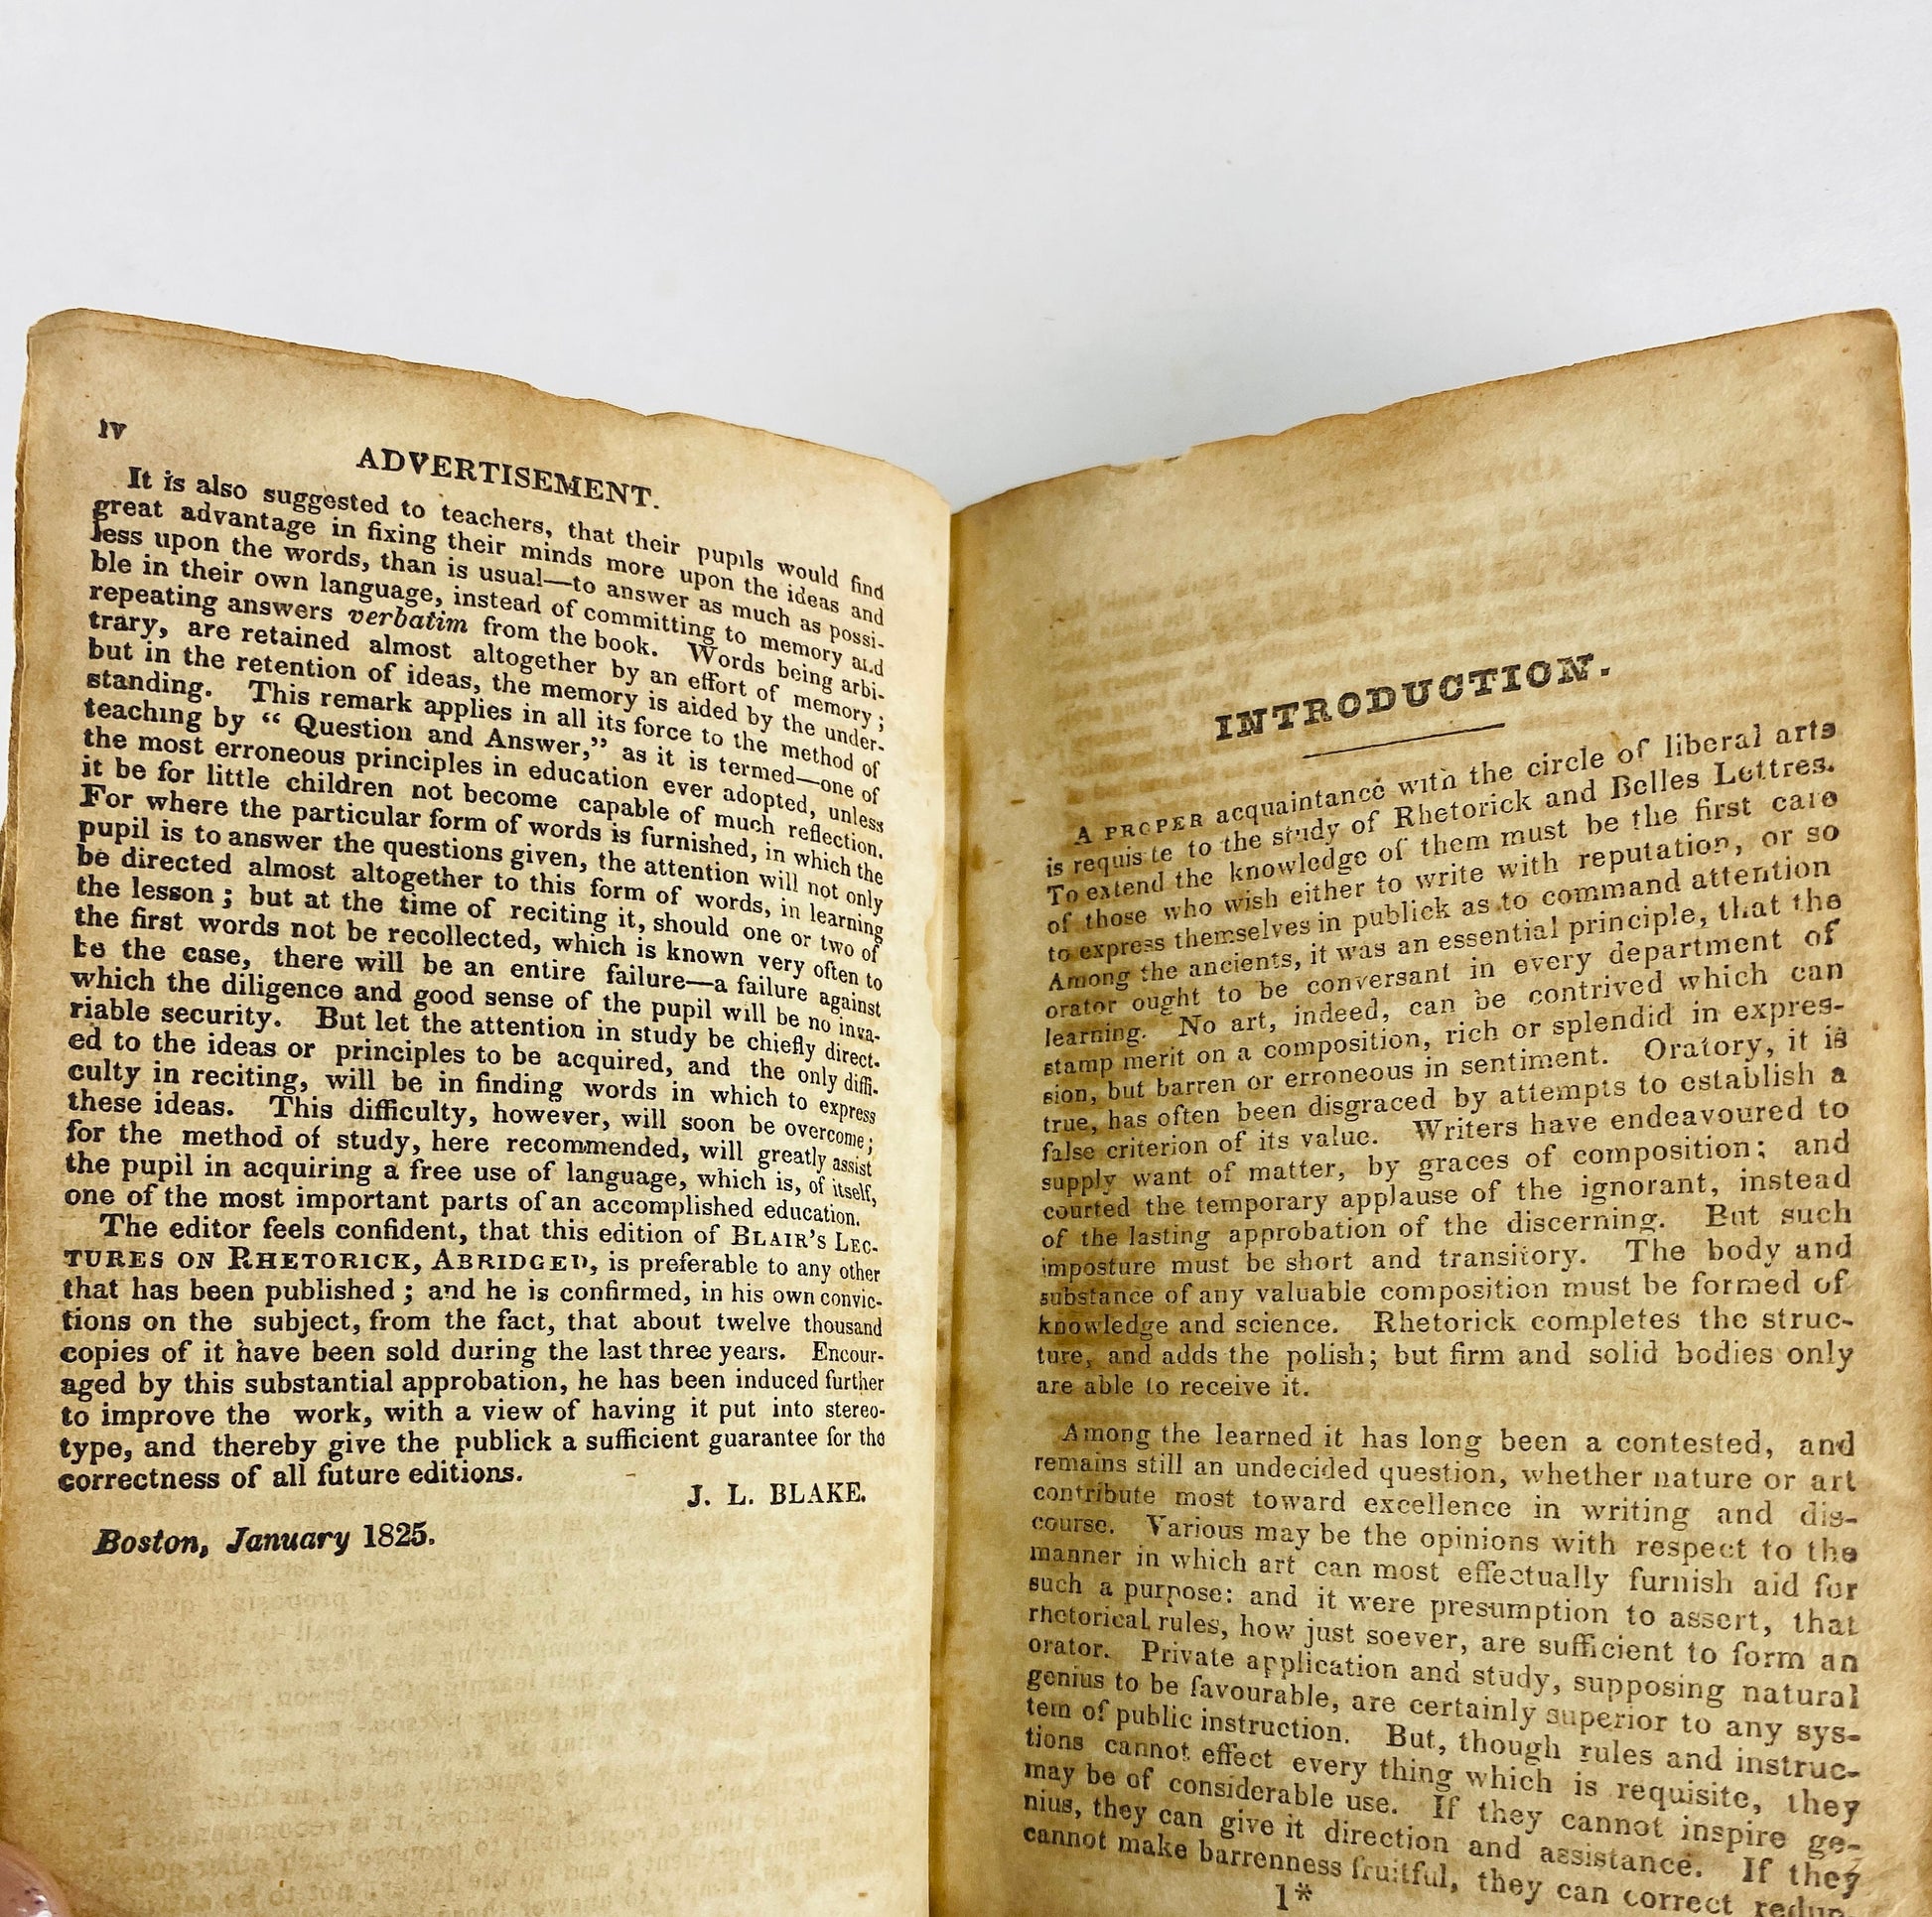 iv
ADVERTISEMENT.
It is also suggested to teachers, that their pupils would find
great advantage in fixing their minds more upon the ideas and
less upon the words, than is usual—to answer as much as possi-
ble in their own language, instead of committing to memory and
repeating answers verbatim from the book. Words being arbi-
trary, are retained almost altogether by an effort of memory;
but in the retention of ideas, the memory is aided by the under-
standing. This remark applies in all its force to the method of
teaching by “Question and Answer,” as it is termed—one of
the most erroneous principles in education ever adopted, unless
it be for little children not become capable of much reflection.
For where the particular form of words is furnished, in which the
pupil is to answer the questions given, the attention will not only
be directed almost altogether to this form of words, in learning
the lesson; but at the time of reciting it, should one or two of
the first words not be recollected, which is known very often to
be the case, there will be an entire failure—a failure against
which the diligence and good sense of the pupil will be no inva-
riable security. But let the attention in study be chiefly direct-
ed to the ideas or principles to be acquired, and the only diffi-
culty in reciting, will be in finding words in which to express
these ideas. This difficulty, however, will soon be overcome;
for the method of study, here recommended, will greatly assist
the pupil in acquiring a free use of language, which is, of itself,
one of the most important parts of an accomplished education.
The editor feels confident, that this edition of BLAIR'S LEC-
TURES ON RHETORICK, ABRIDGED, is preferable to any other
that has been published; and he is confirmed, in his own convic-
tions on the subject, from the fact, that about twelve thousand
copies of it have been sold during the last three years. Encour-
aged by this substantial approbation, he has been induced further
to improve the work, with a view of having it put into stereo-
type, and thereby give the publick a sufficient guarantee for the
correctness of all future editions.
J. L. BLAKE.
Boston, January 1825.
INTRODUCTION.
A PROPER acquaintance with the circle of liberal arts
is requisite to the study of Rhetorick and Belles Lettres.
To extend the knowledge of them must be the first care
of those who wish either to write with reputation, or so
to express themselves in publick as to command attention
Among the ancients, it was an essential principle, that the
orator ought to be conversant in every department of
learning. No art, indeed, can be contrived which can
stamp merit on a composition, rich or splendid in expres-
sion, but barren or erroneous in sentiment. Oratory, it is
true, has often been disgraced by attempts to establish a
false criterion of its value. Writers have endeavoured to
supply want of matter, by graces of composition; and
courted the temporary applause of the ignorant, instead
of the lasting approbation of the discerning. But such
imposture must be short and transitory. The body and
substance of any valuable composition must be formed of
knowledge and science. Rhetorick completes the struc-
ture, and adds the polish; but firm and solid bodies only
are able to receive it.
Among the learned it has long been a contested, and
remains still an undecided question, whether nature or art
contribute most toward excellence in writing and dis-
course. Various may be the opinions with respect to the
manner in which art can most effectually furnish aid for
such a purpose: and it were presumption to assert, that
rhetorical rules, how just soever, are sufficient to form an
orator. Private application and study, supposing natural
genius to be favourable, are certainly superior to any sys-
tem of public instruction. But, though rules and instruc-
tions cannot effect every thing which is requisite, they
may be of considerable use. If they cannot inspire ge-
nius, they can give it direction and assistance. If they
cannot make barrenness fruitful, they can correct redun-
1*